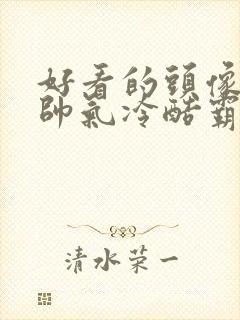 好看的頭像
帥氣冷酷霸
清水荣一